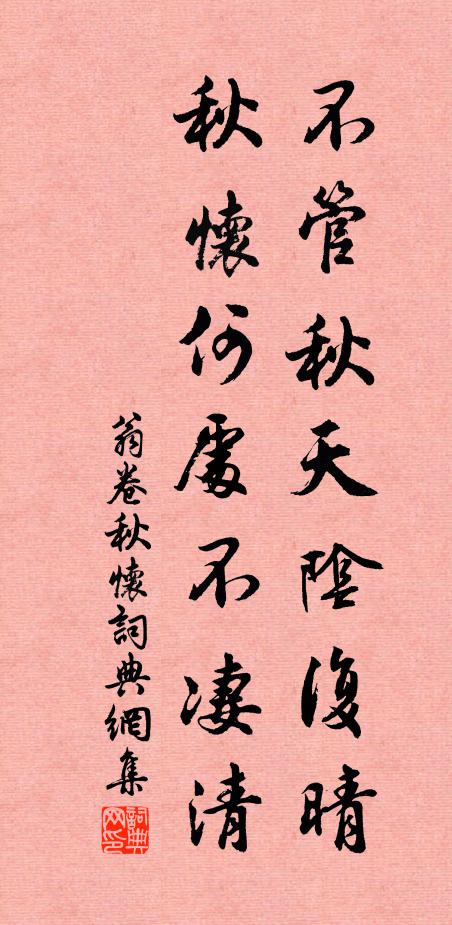 不管秋天陰復晴
秋懷何處不凄清
翁卷秋懷詞典網集
詞典网印